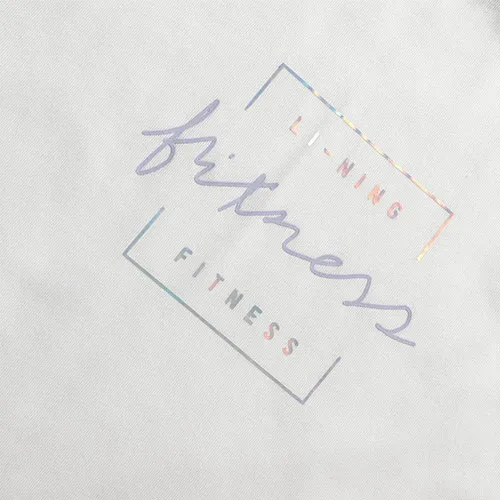 LI-NING
fitness
FITNESS